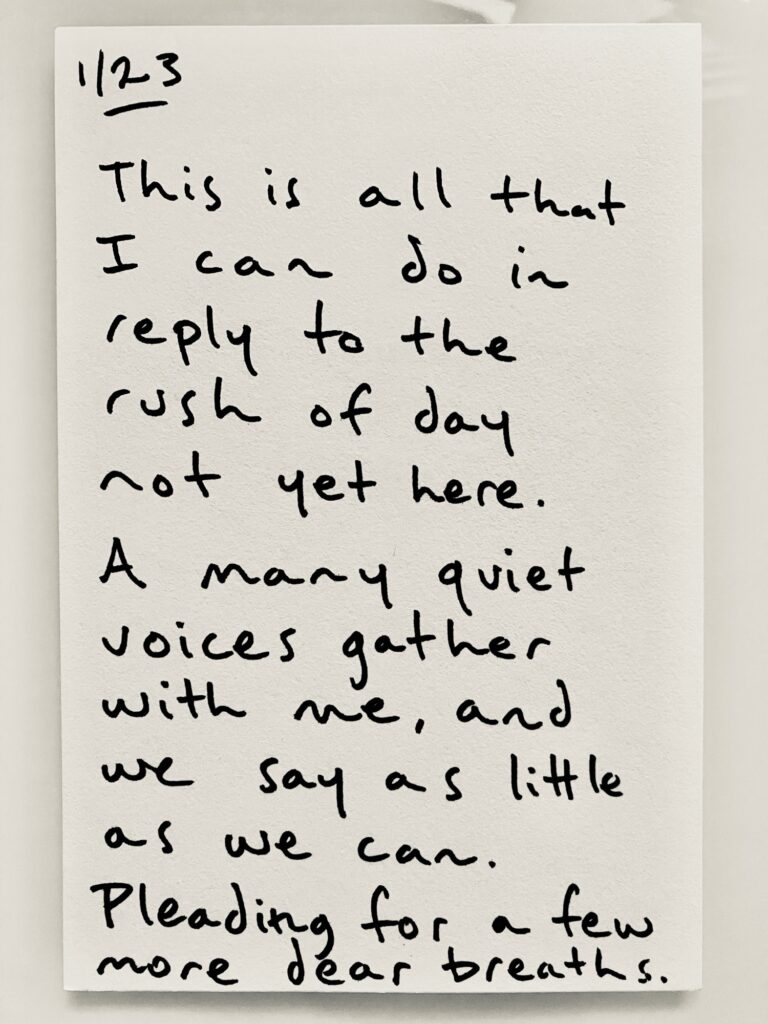 1/23
This is all that
I can do in
reply to the
rush of day
not yet here.
A many quiet
voices gather
with me, and
we say as little
as we can.
Pleading for a few
more dear breaths.